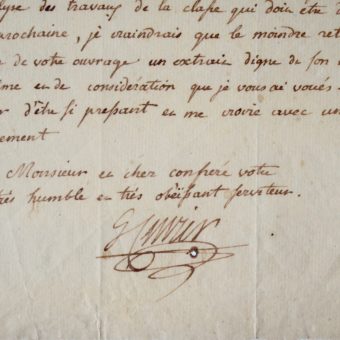 lyse des travaux de la classe qui doit être d
rochaine, je craindrais que le moindre ret
de votre ouvrage un extrait digne de son
me et de considération que je vous ai voués.
r d'être si pressant et me croire avec un
ement
Monsieur et cher confrére votre
trés humble et trés obéissant serviteur.
G Cuvier